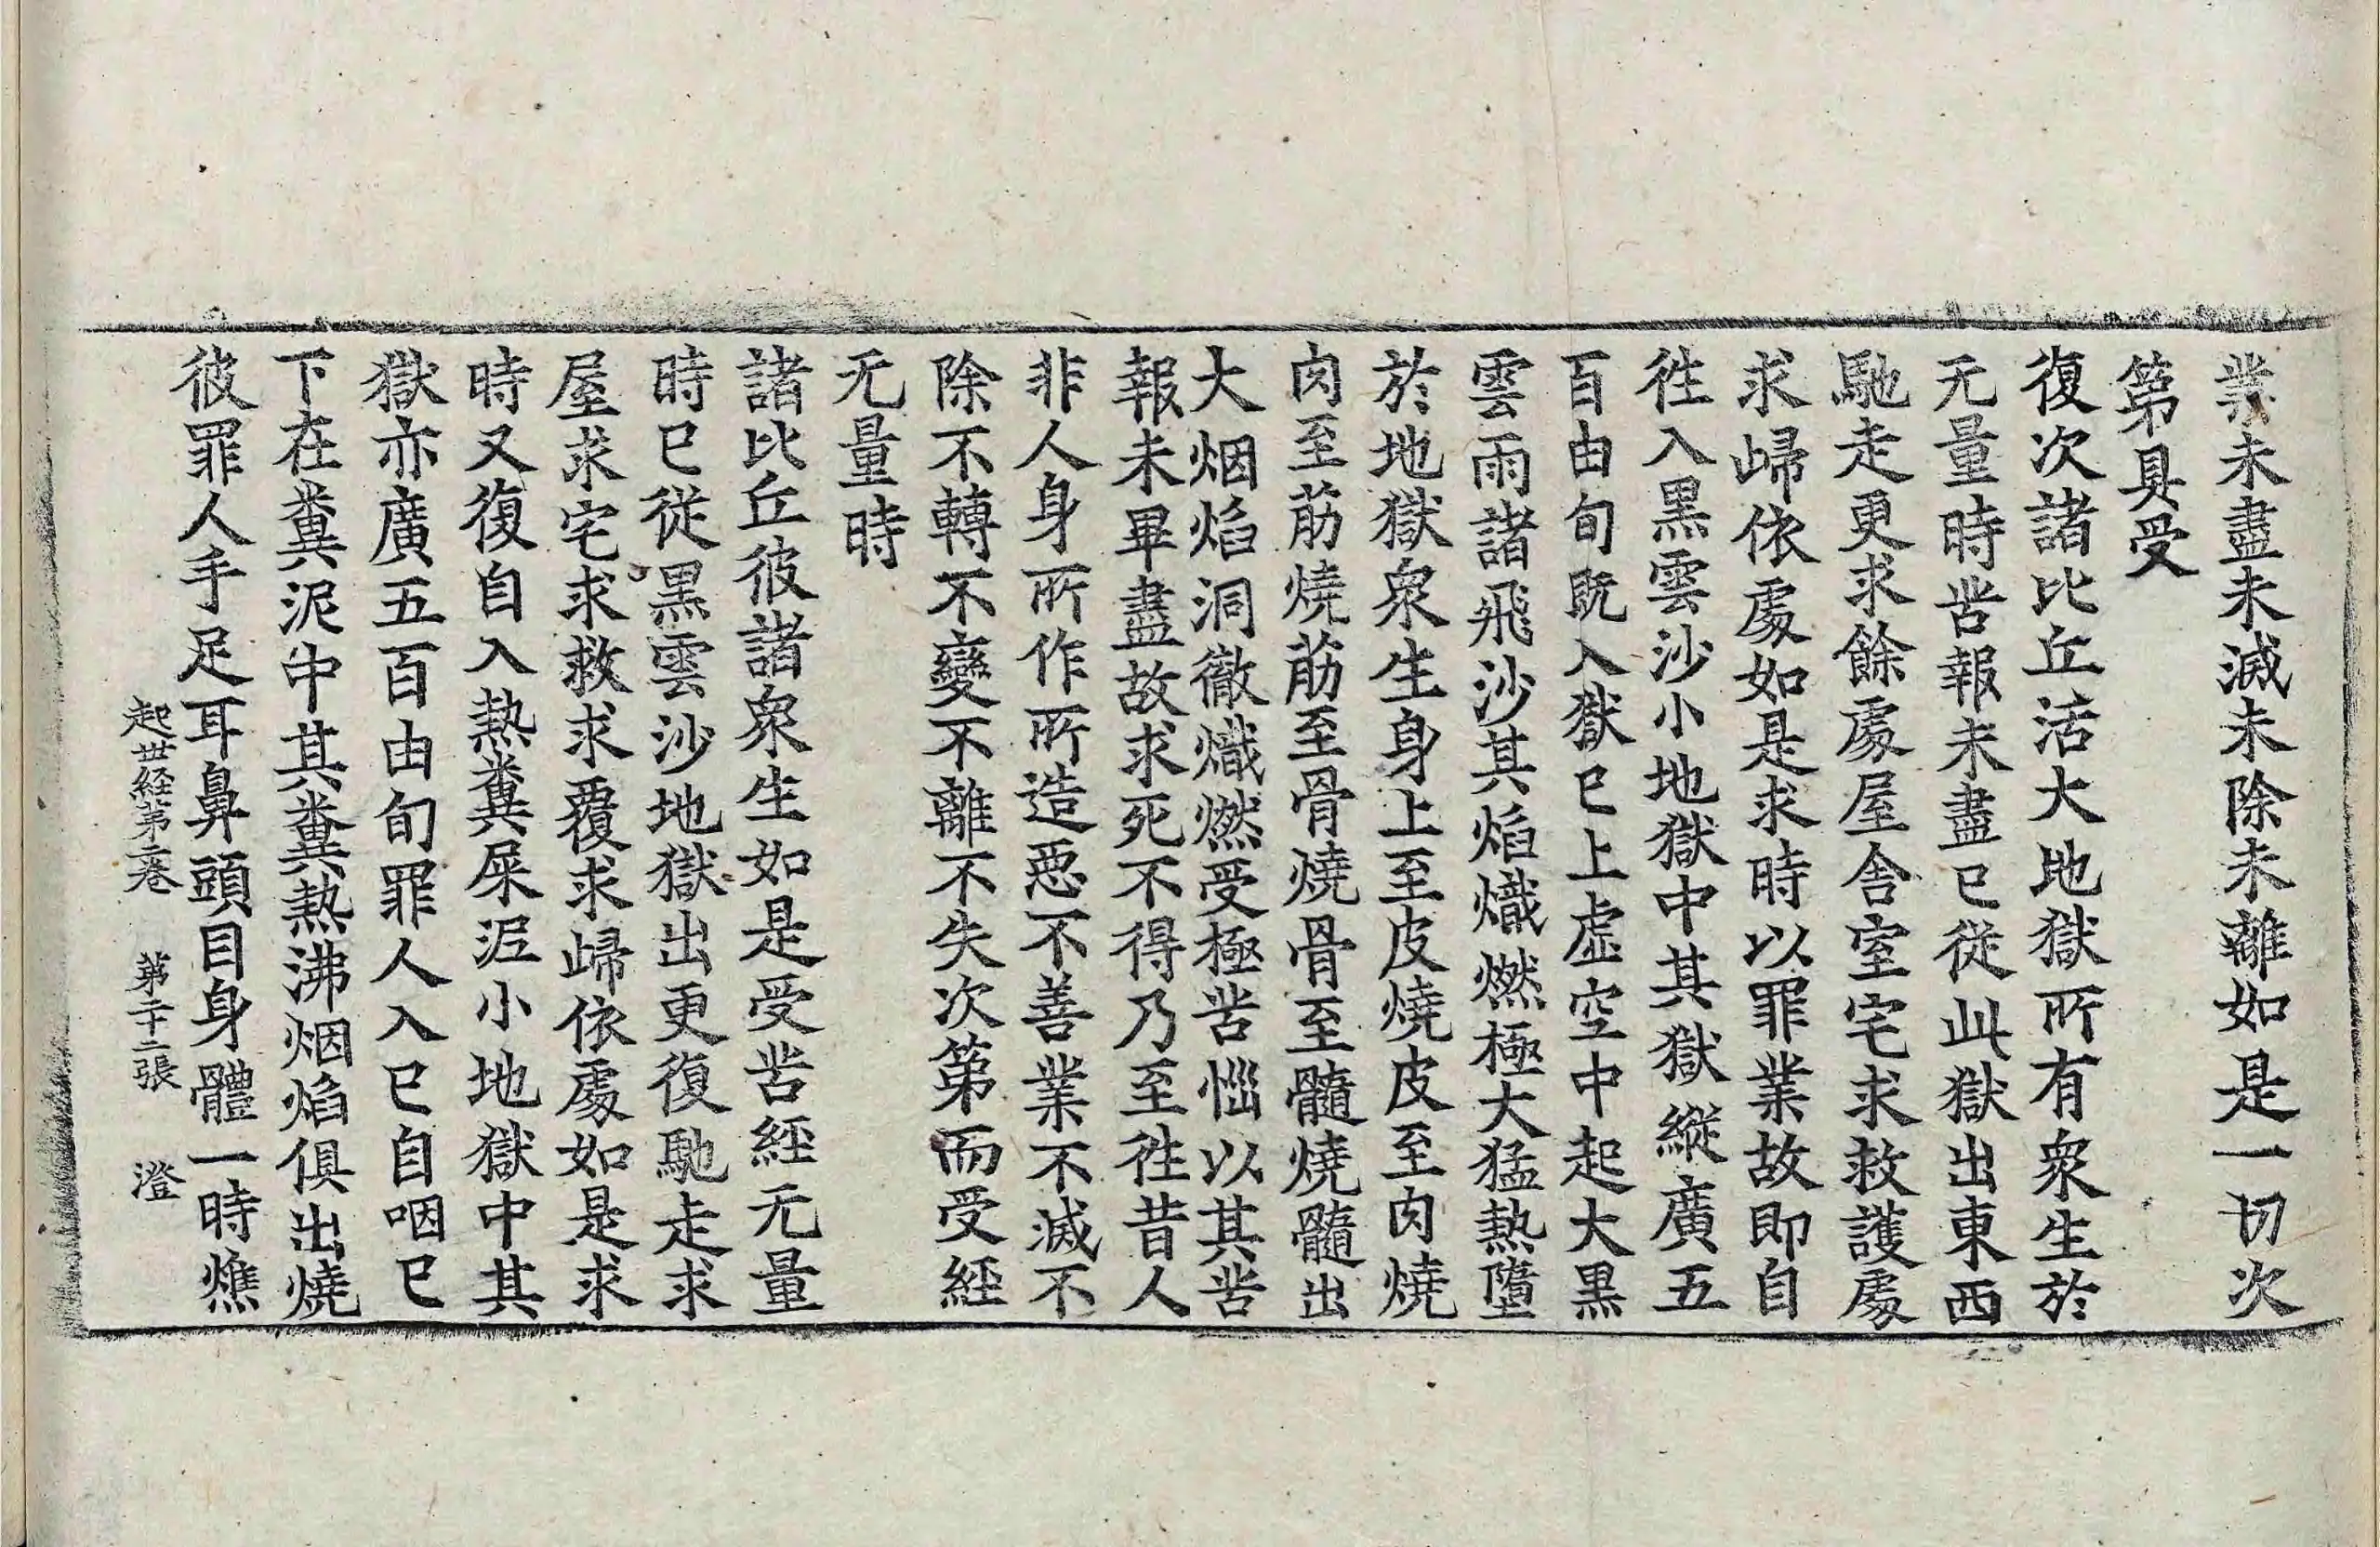 業未盡未滅未除未離如是一切次
第具受
復次諸比丘活大地獄所有衆生於
无量時苦報未盡已從此獄出東西
馳走更求餘處屋舍室宅求救護處
求歸依處如是求時以罪業故即自
往入黑雲沙小地獄中其獄縱廣五
百由旬旣入獄已上虛空中起大黑
雲雨諸飛沙其焰熾燃極大猛熱墮
於地獄衆生身上至皮燒皮至肉燒
肉至筋燒筋至骨燒骨至髓燒髓出
大烟焰洞徹熾燃受極苦惱以其苦
報未畢盡故求死不得乃至往昔人
非人身所作所造惡不善業不滅不
除不轉不變不離不失次第而受經
无量時
諸比丘彼諸衆生如是受苦經无量
時已從黑雲沙地獄出更復馳走求
屋求宅求救求覆求歸依處如是求
時又復自入熱糞屎泥小地獄中其
獄亦廣五百由旬罪人入已自咽已
下在糞泥中其糞熱沸烟焰俱出燒
彼罪人手足耳鼻頭目身體一時燋
起世経第二卷　第二十二張　澄